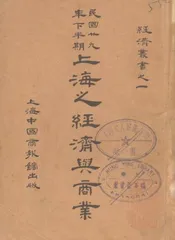 經濟叢書之一
民國廿九
年下半期
上海之經濟與商業
上海中國商報館出版